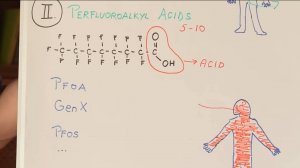 II PERFLUOROALKYL ACIDS
5-10
F F F F F F F O
F -C-C-C-C-C-C-C-C
F F F F F F F OH → ACID
PFOA
GenX
PFOS
...